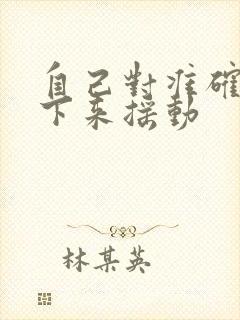 自己對准確
下來搖動
林某英